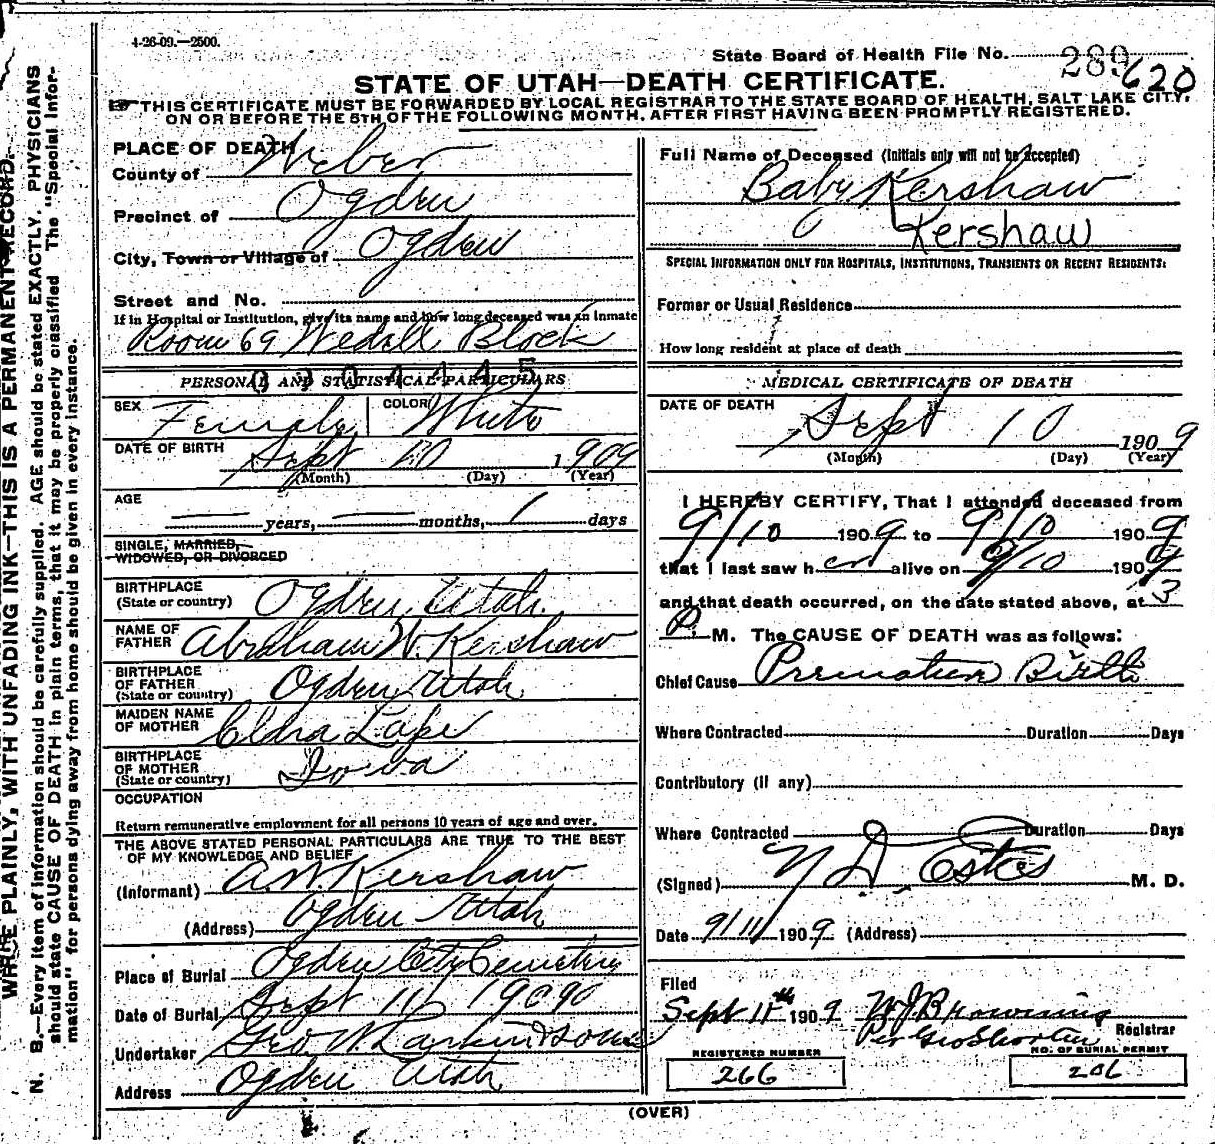 4-26-09.—2500.
State Board of Health File No. 289 620
STATE OF UTAH—DEATH CERTIFICATE.
THIS CERTIFICATE MUST BE FORWARDED BY LOCAL REGISTRAR TO THE STATE BOARD OF HEALTH, SALT LAKE CITY,
ON OR BEFORE THE 5TH OF THE FOLLOWING MONTH. AFTER FIRST HAVING BEEN PROMPTLY REGISTERED.
PLACE OF DEATH
County of Weber
Precinct of Ogden
City, Town or Village of Ogden
Street and No.
If in Hospital or Institution, give its name and how long deceased was an inmate
Room 69 Block
PERSONAL AND STATISTICAL PARTICULARS
SEX Female COLOR White
DATE OF BIRTH Sept 10 1909
(Month) (Day) (Year)
AGE
years, months, 1 days
SINGLE, MARRIED,
WIDOWED, OR DIVORCED
BIRTHPLACE
(State or country) Ogden Utah
NAME OF
FATHER Abraham W. Kershaw
BIRTHPLACE
OF FATHER
(State or country) Ogden Utah
MAIDEN NAME
OF MOTHER Lake
BIRTHPLACE
OF MOTHER
(State or country) Iowa
OCCUPATION
Return remunerative employment for all persons 10 years of age and over.
THE ABOVE STATED PERSONAL PARTICULARS ARE TRUE TO THE BEST
OF MY KNOWLEDGE AND BELIEF
(Informant) A.W. Kershaw
(Address) Ogden Utah
Place of Burial Ogden City Cemetery
Date of Burial Sept 11 1909
Undertaker Geo W. Larkin & Sons
Address Ogden Utah
Full Name of Deceased (Initials only will not be accepted)
Baby Kershaw
Kershaw
SPECIAL INFORMATION ONLY FOR HOSPITALS, INSTITUTIONS, TRANSIENTS OR RECENT RESIDENTS:
Former or Usual Residence
How long resident at place of death
MEDICAL CERTIFICATE OF DEATH
DATE OF DEATH
Sept 10 1909
(Month) (Day) (Year)
I HEREBY CERTIFY, That I attended deceased from
9/10 1909 to 9/10 1909
that I last saw her alive on 9/10 1909
and that death occurred, on the date stated above, at 3
P. M. The CAUSE OF DEATH was as follows:
Chief Cause Premature Birth
Where Contracted Duration Days
Contributory (if any)
Where Contracted Duration Days
(Signed) Estes M. D.
Date 9/11/ 1909 (Address)
Filed
Sept 11th 1909 W J Browning
Per Geo Shorten Registrar
REGISTERED NUMBER
266
NO. OF BURIAL PERMIT
206
(OVER)
WRITE PLAINLY, WITH UNFADING INK—THIS IS A PERMANENT RECORD.
N. B.—Every item of information should be carefully supplied. AGE should be stated EXACTLY. PHYSICIANS
should state CAUSE OF DEATH in plain terms, that it may be properly classified. The "Special Infor-
mation" for persons dying away from home should be given in every instance.